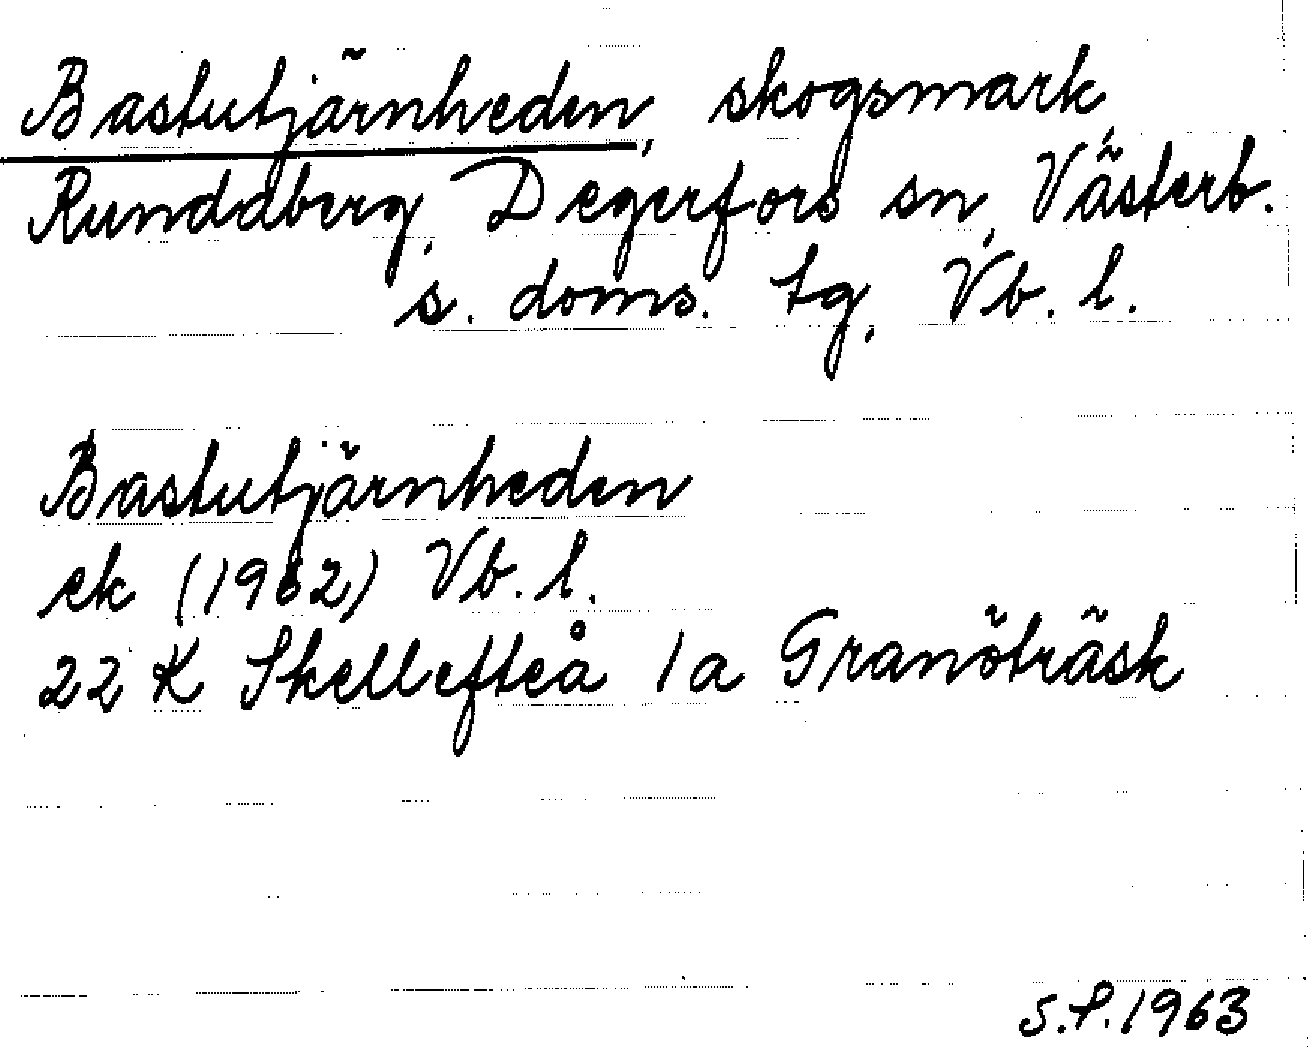 Bastutjärnheden, skogsmark,
Rundberg, Degerfors sn, Västerb.
s. doms. tg, Vb. l.
Bastutjärnheden
ek (1962) Vb. l.
22 K Skellefteå 1a Granöträsk
S.P. 1963